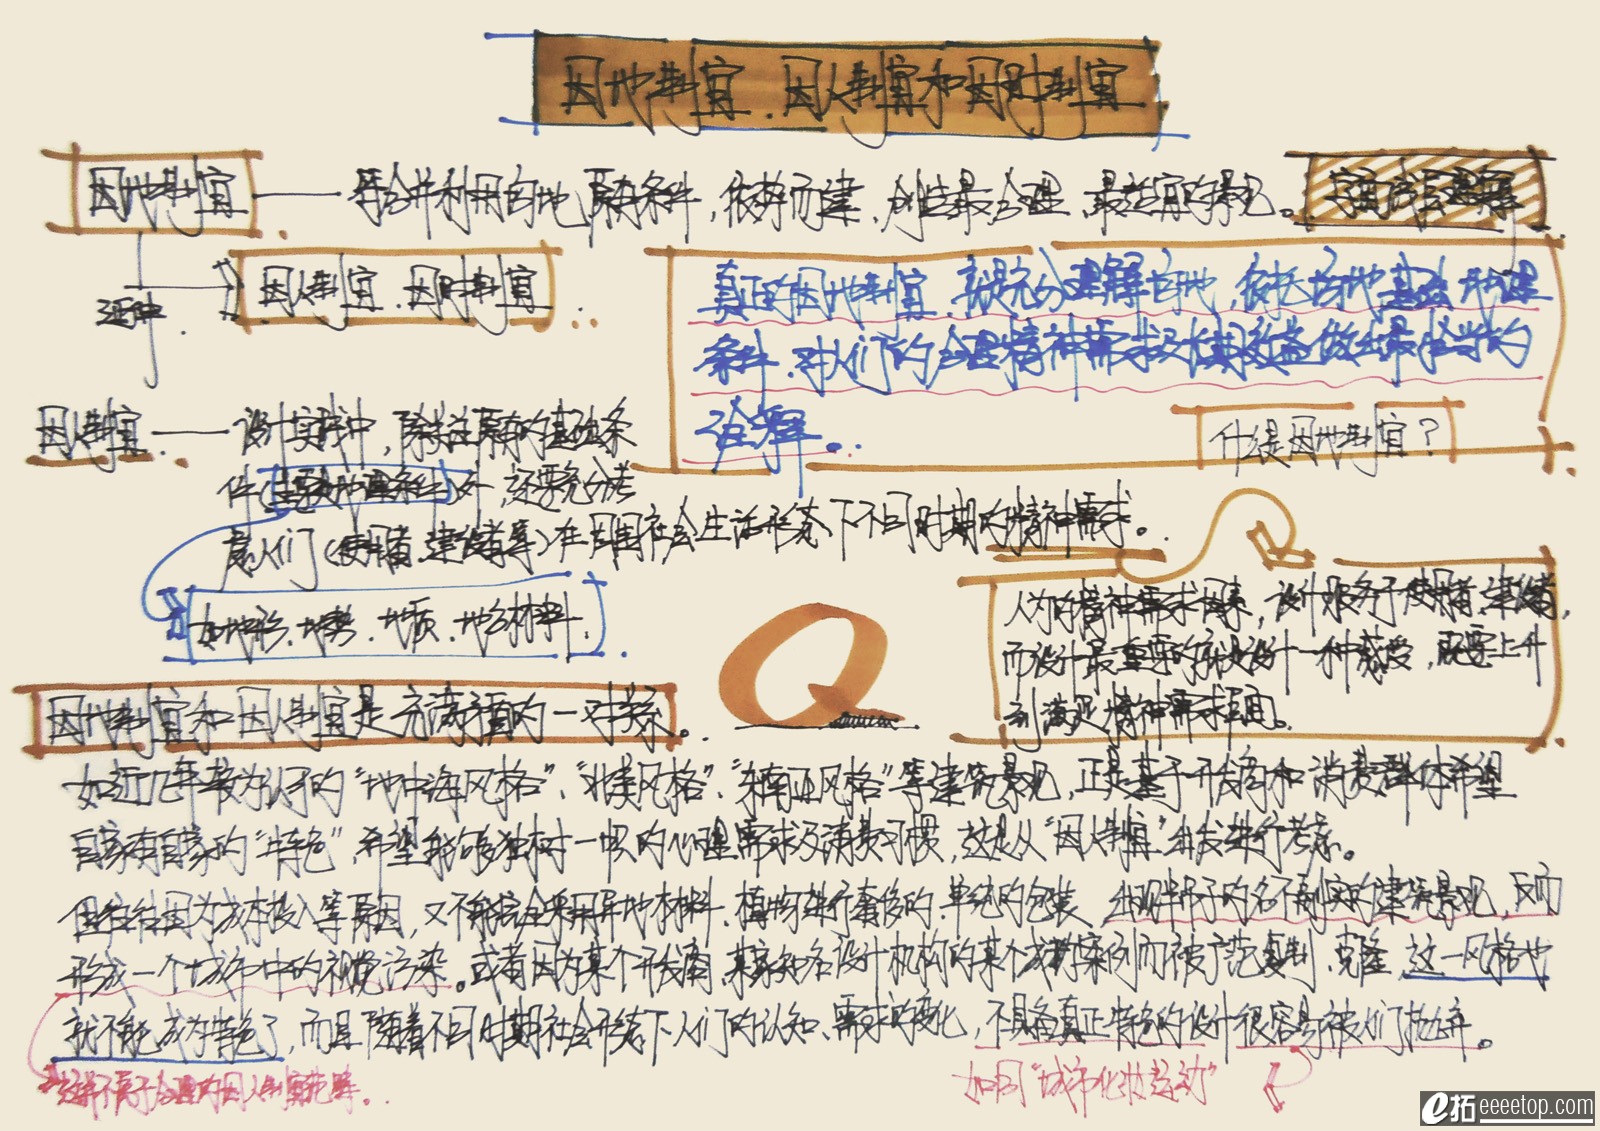 因地制宜、因人制宜和因时制宜
因地制宜 —— 符合并利用当地原有条件，依势而建，创造最合理、最适宜的景观。
字面的理解
延伸
因人制宜、因时制宜
真正的因地制宜，就是充分理解当地，依托当地基础
条件，对人们的合理精神需求及长期效益做出最恰当的
诠释。
什么是因地制宜？
因人制宜 —— 设计实践中，除关注原有的基础条
件（主要为地理条件）外，还要充分考
虑人们（使用者、建设者等）在周围社会生活形态下不同时期的精神需求。
如地形、地势、地质、地方材料。
人为的精神需求因素，设计服务于使用者、建设者，
而设计最重要的就是设计一种感受，既要上升
到满足精神需求层面。
因地制宜和因人制宜是充满矛盾的一对关系。
如近几年较为认可的“地中海风格”、“北美风格”、“东南亚风格”等建筑景观，正是基于开发商和消费群体希望
自家有自家的“特色”，希望能够独树一帜的心理需求及消费习惯，这是从“因人制宜”出发进行考虑。
但往往因为成本投入等原因，又不能完全采用异地材料、植物进行奢侈的、单纯的包装，出现半吊子的名不副实的建筑景观，反而
形成一个城市中的视觉污染。或者因为某个开发商、某家知名设计机构的某个成功案例而被广范复制、克隆，这一风格也
就不能成为特色了，而且随着不同时期社会形态下人们的认知、需求的变化，不具备真正特色的设计很容易被人们抛弃。
这并不属于合理的因人制宜范畴。
如同“城市化妆运动”
e拓 eeeetop.com